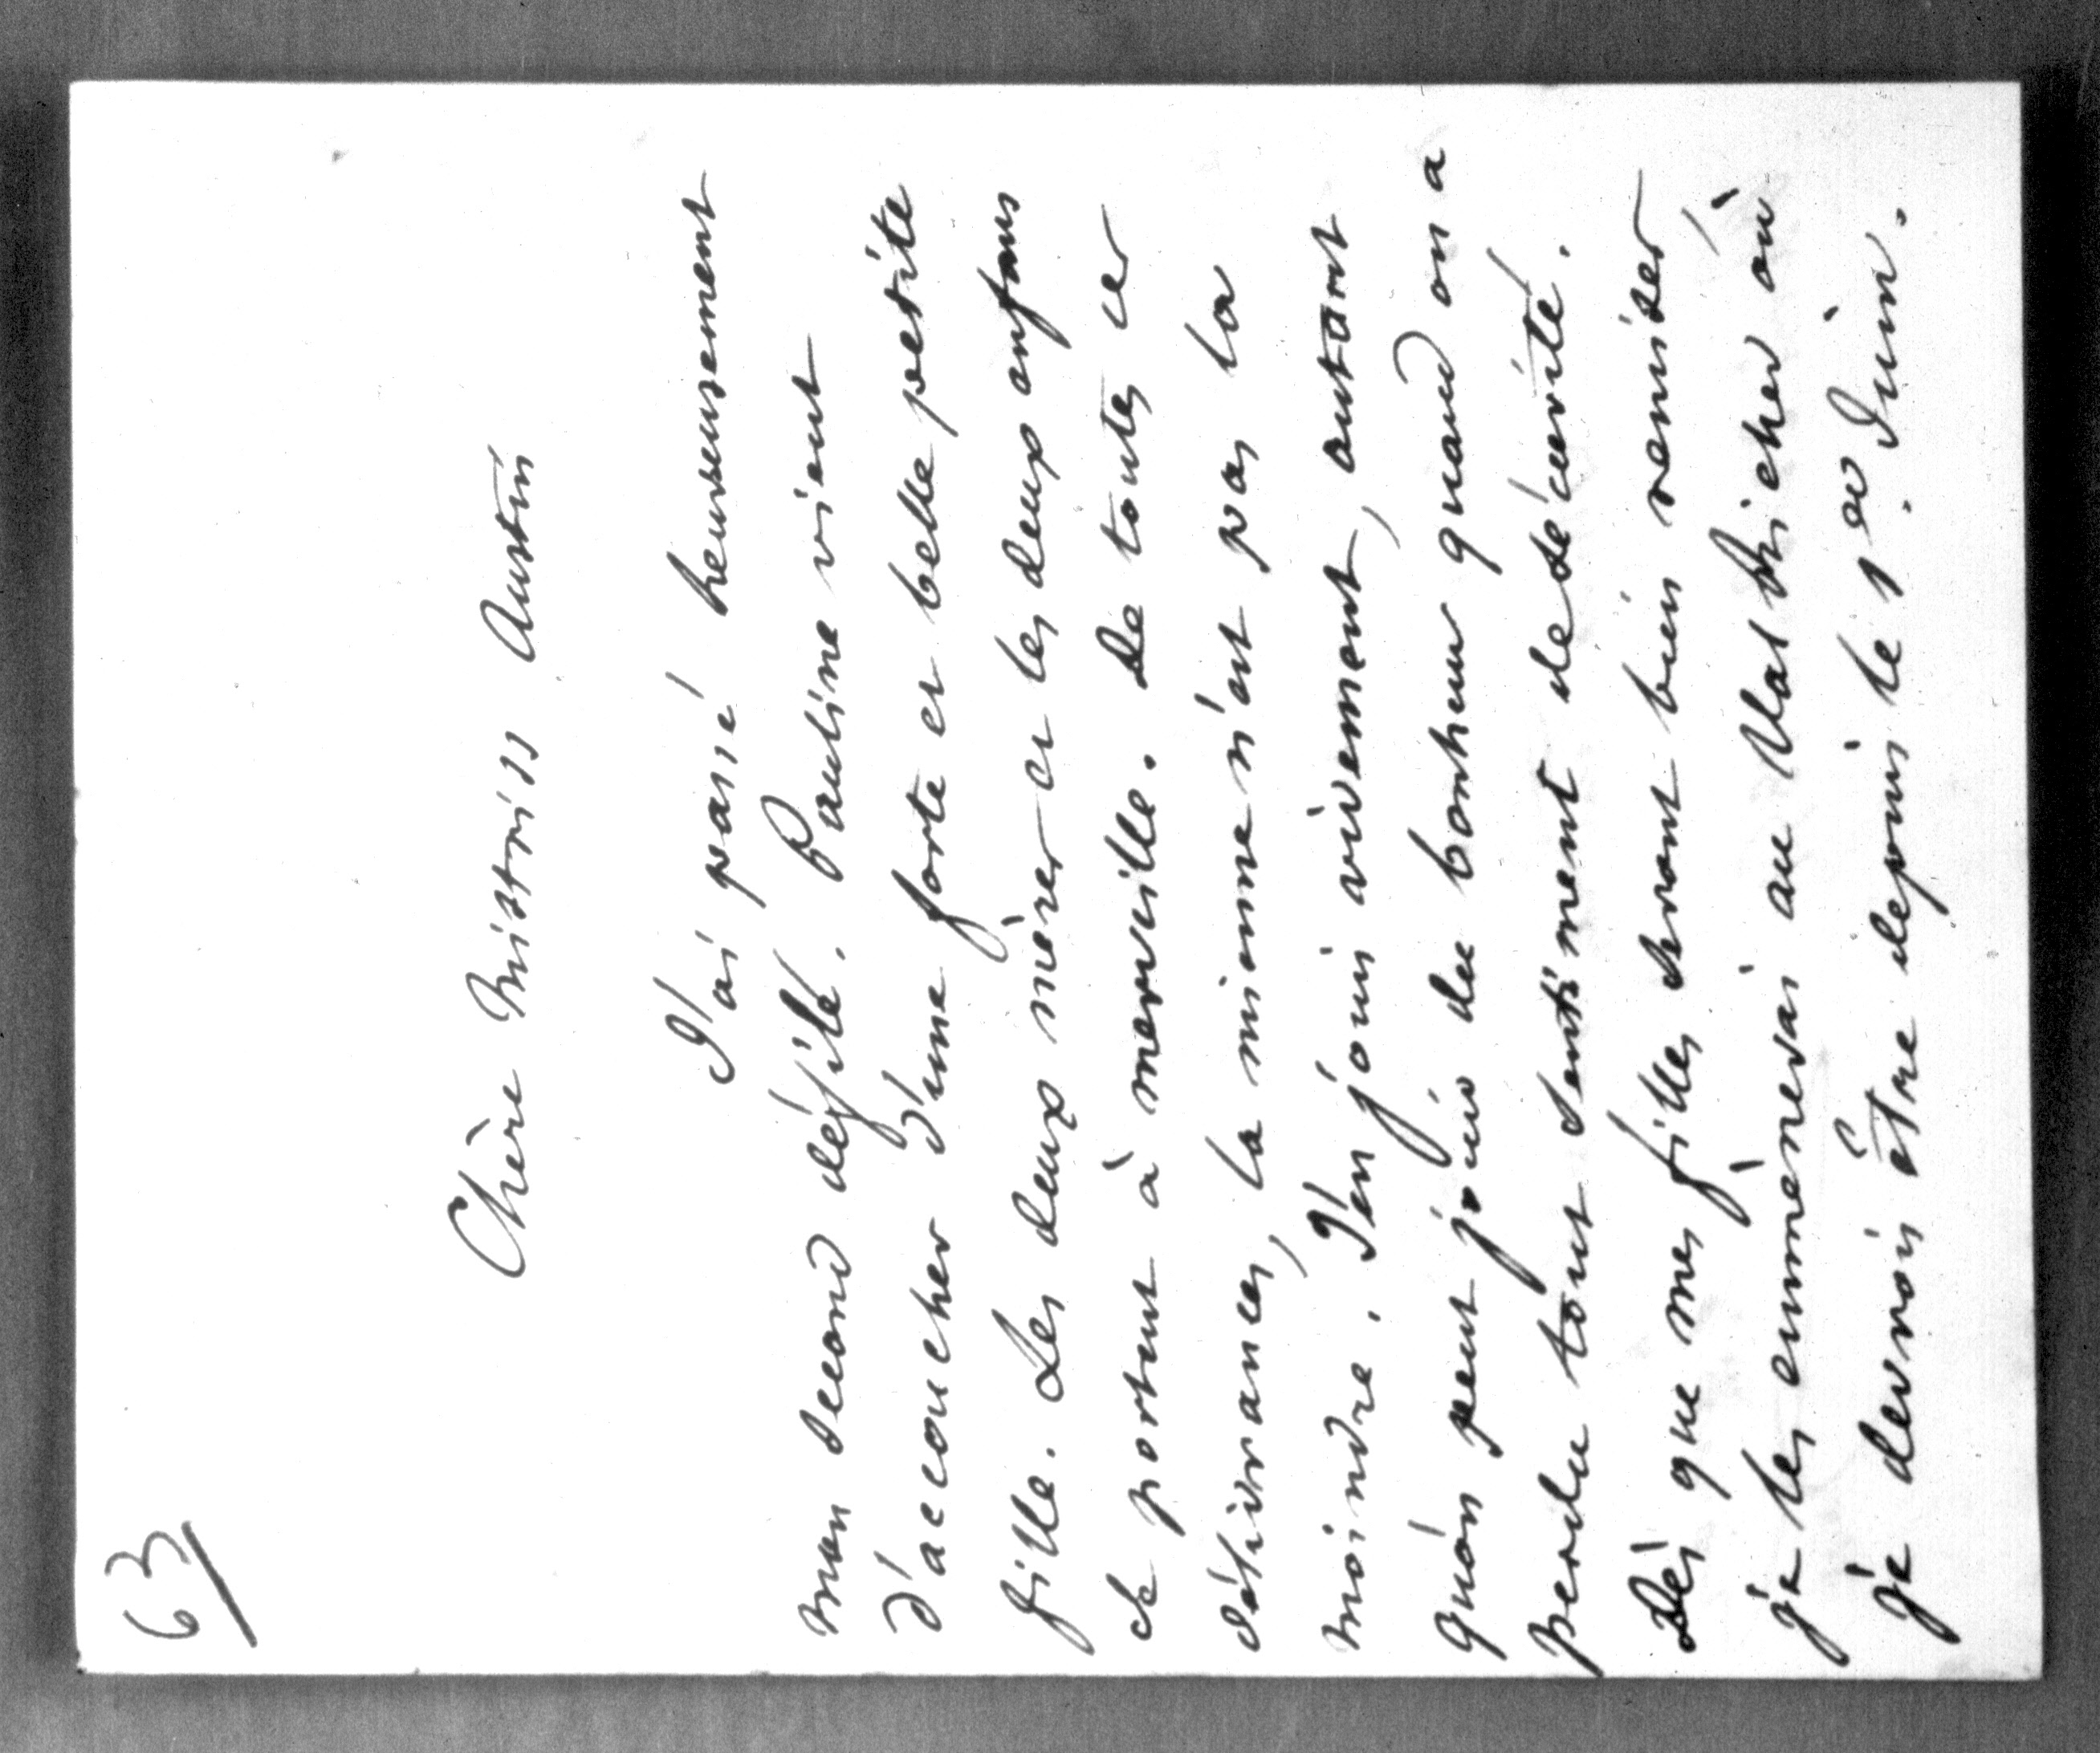 63
Chère Mistriss Austin
J'ai passé heureusement
mon second défilé. Pauline vient
d'accoucher d'une forte et belle petite
fille. Les deux mères et les deux enfans
se portent à merveille. De toutes ces
délivrances, la mienne n'est pas la
moindre. J'en jouis vivement, autant
qu'on peut jouir du bonheur quand on a
perdu tout sentiment de sécurité.
Dès que mes filles seront bien remises
je les emmènerai au Val Richer où
je devrois être depuis le 1er Juin.